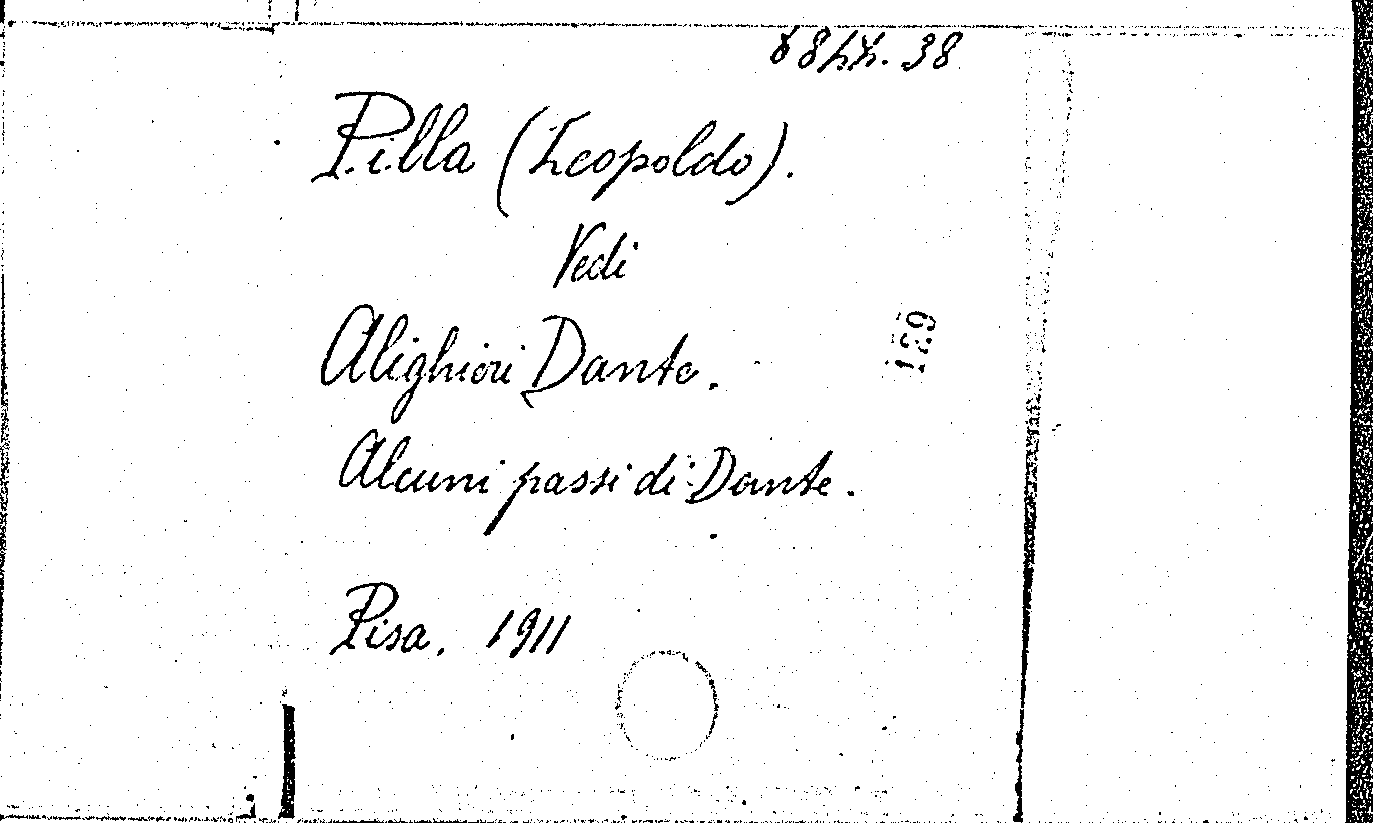 Pilla (Leopoldo).
Vedi
Alighieri Dante.
Alcuni passi di Dante.
Pisa. 1911
129